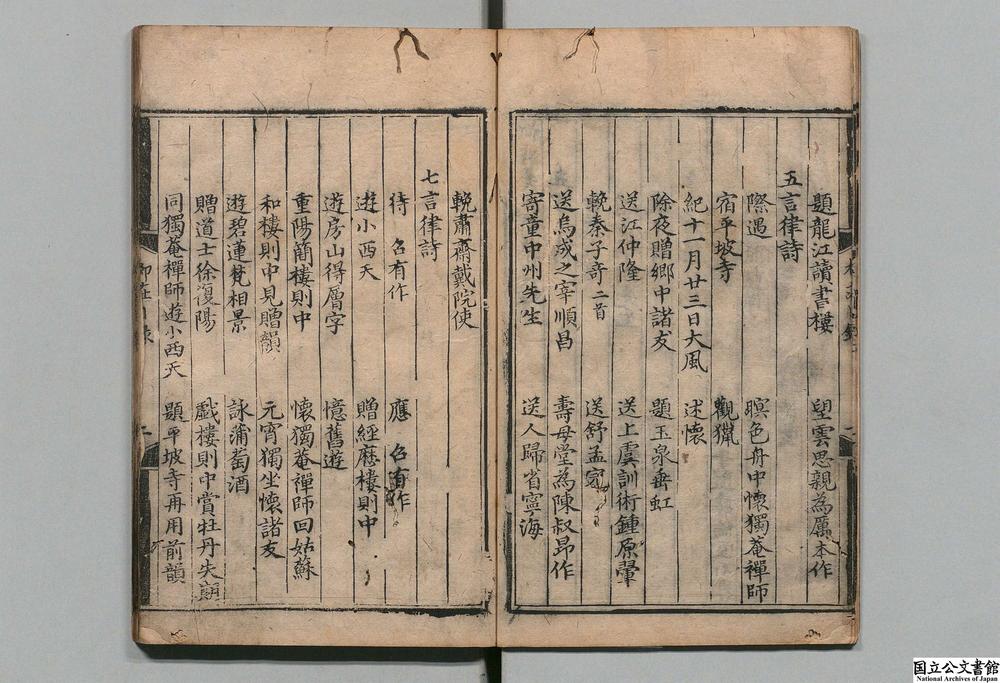 題龍江讀書樓　望雲思親為厲本作
五言律詩
際遇　暝色舟中懷獨菴禪師
宿平坡寺　觀獵
紀十一月廿三日大風　述懷
除夜贈鄉中諸友　題玉泉垂虹
送江仲隆　送上虞訓術鍾原翬
輓秦子奇二首　送舒孟
送烏成之宰順昌　壽母堂為陳叔昂作
寄童中州先生　送人歸省寧海
輓肅齋戴院使
七言律詩
待　召有作　應　召有作
遊小西天　贈經歷樓則中
遊房山得層字　憶舊遊
重陽簡樓則中　懷獨菴禪師回姑蘇
和樓則中見贈韻　元宵獨坐懷諸友
遊碧蓮梵相景　詠蒲萄酒
贈道士徐復陽　戲樓則中賞牡丹失期
同獨菴禪師遊小西天　題平坡寺再用前韻
国立公文書館
National Archives of Japan